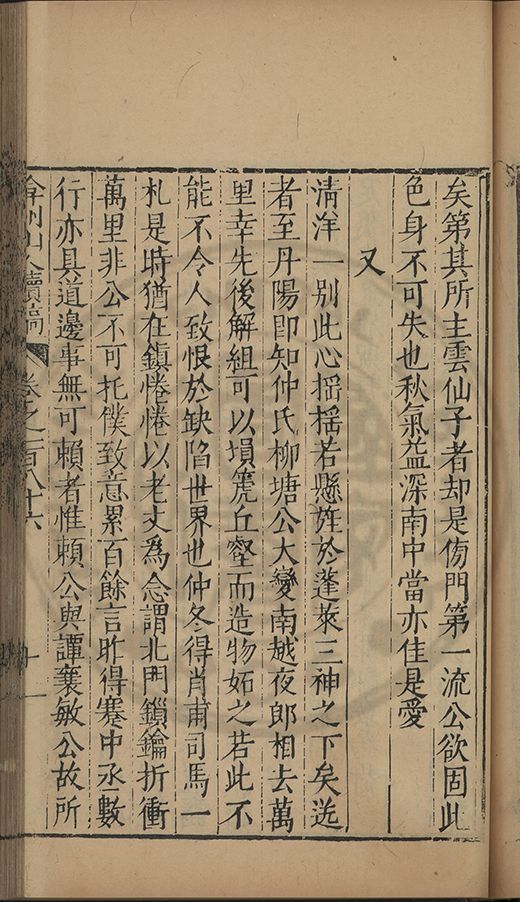 矣第其所主雲仙子者却是傍門第一流公欲固此
色身不可失也秋氣益深南中當亦佳是愛
又
清洋一別此心揺揺若懸旌於蓬萊三神之下矣迯
者至丹陽即知仲氏柳塘公大變南越夜郎相去萬
里幸先後解組可以塤箎丘壑而造物妬之若此不
能不令人致恨於缺陷世界也仲冬得肖甫司馬一
札是時猶在鎮惓惓以老丈爲念謂北門鎖鑰折衝
萬里非公不可托僕致意累百餘言昨得蹇中丞數
行亦具道邊事無可賴者惟頼公與譚襄敏公故所
弇州山人續稿 卷之一百八十六